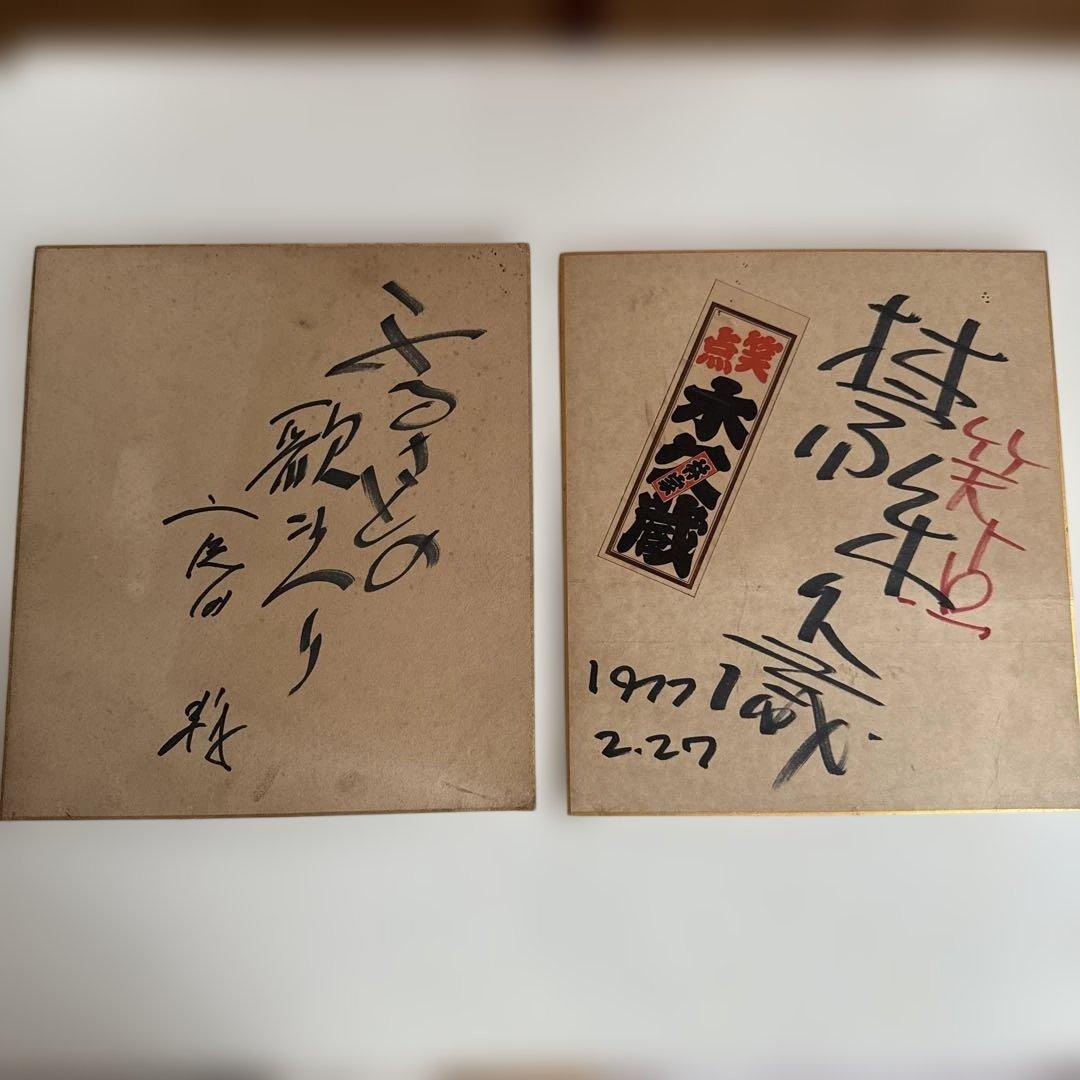 ふるさとの
歌まつり
宮田 輝
笑点
林家
木久蔵
笑点
林家
木久蔵
1977
2.27